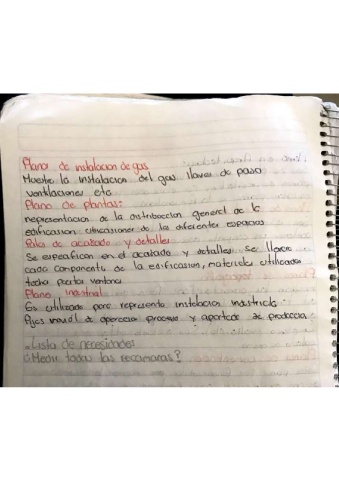 Plano de instalacion de gas
Muestra la instalacion del gas llaves de paso
ventilaciones etc
Plano de plantas:
representacion de la distribucion general de la
edificacion ubicaciones de los diferentes espacios
de acabado y detalles
Se especifican en el acabado y detalles se
cada componente de la edificasion, materiales utilizados
techo puertas ventanas
Plano industrial
Es utilizado para representa instalacion
de operacion proceso y de produccion
Lista de necesidades
Medir todas las recamaras?